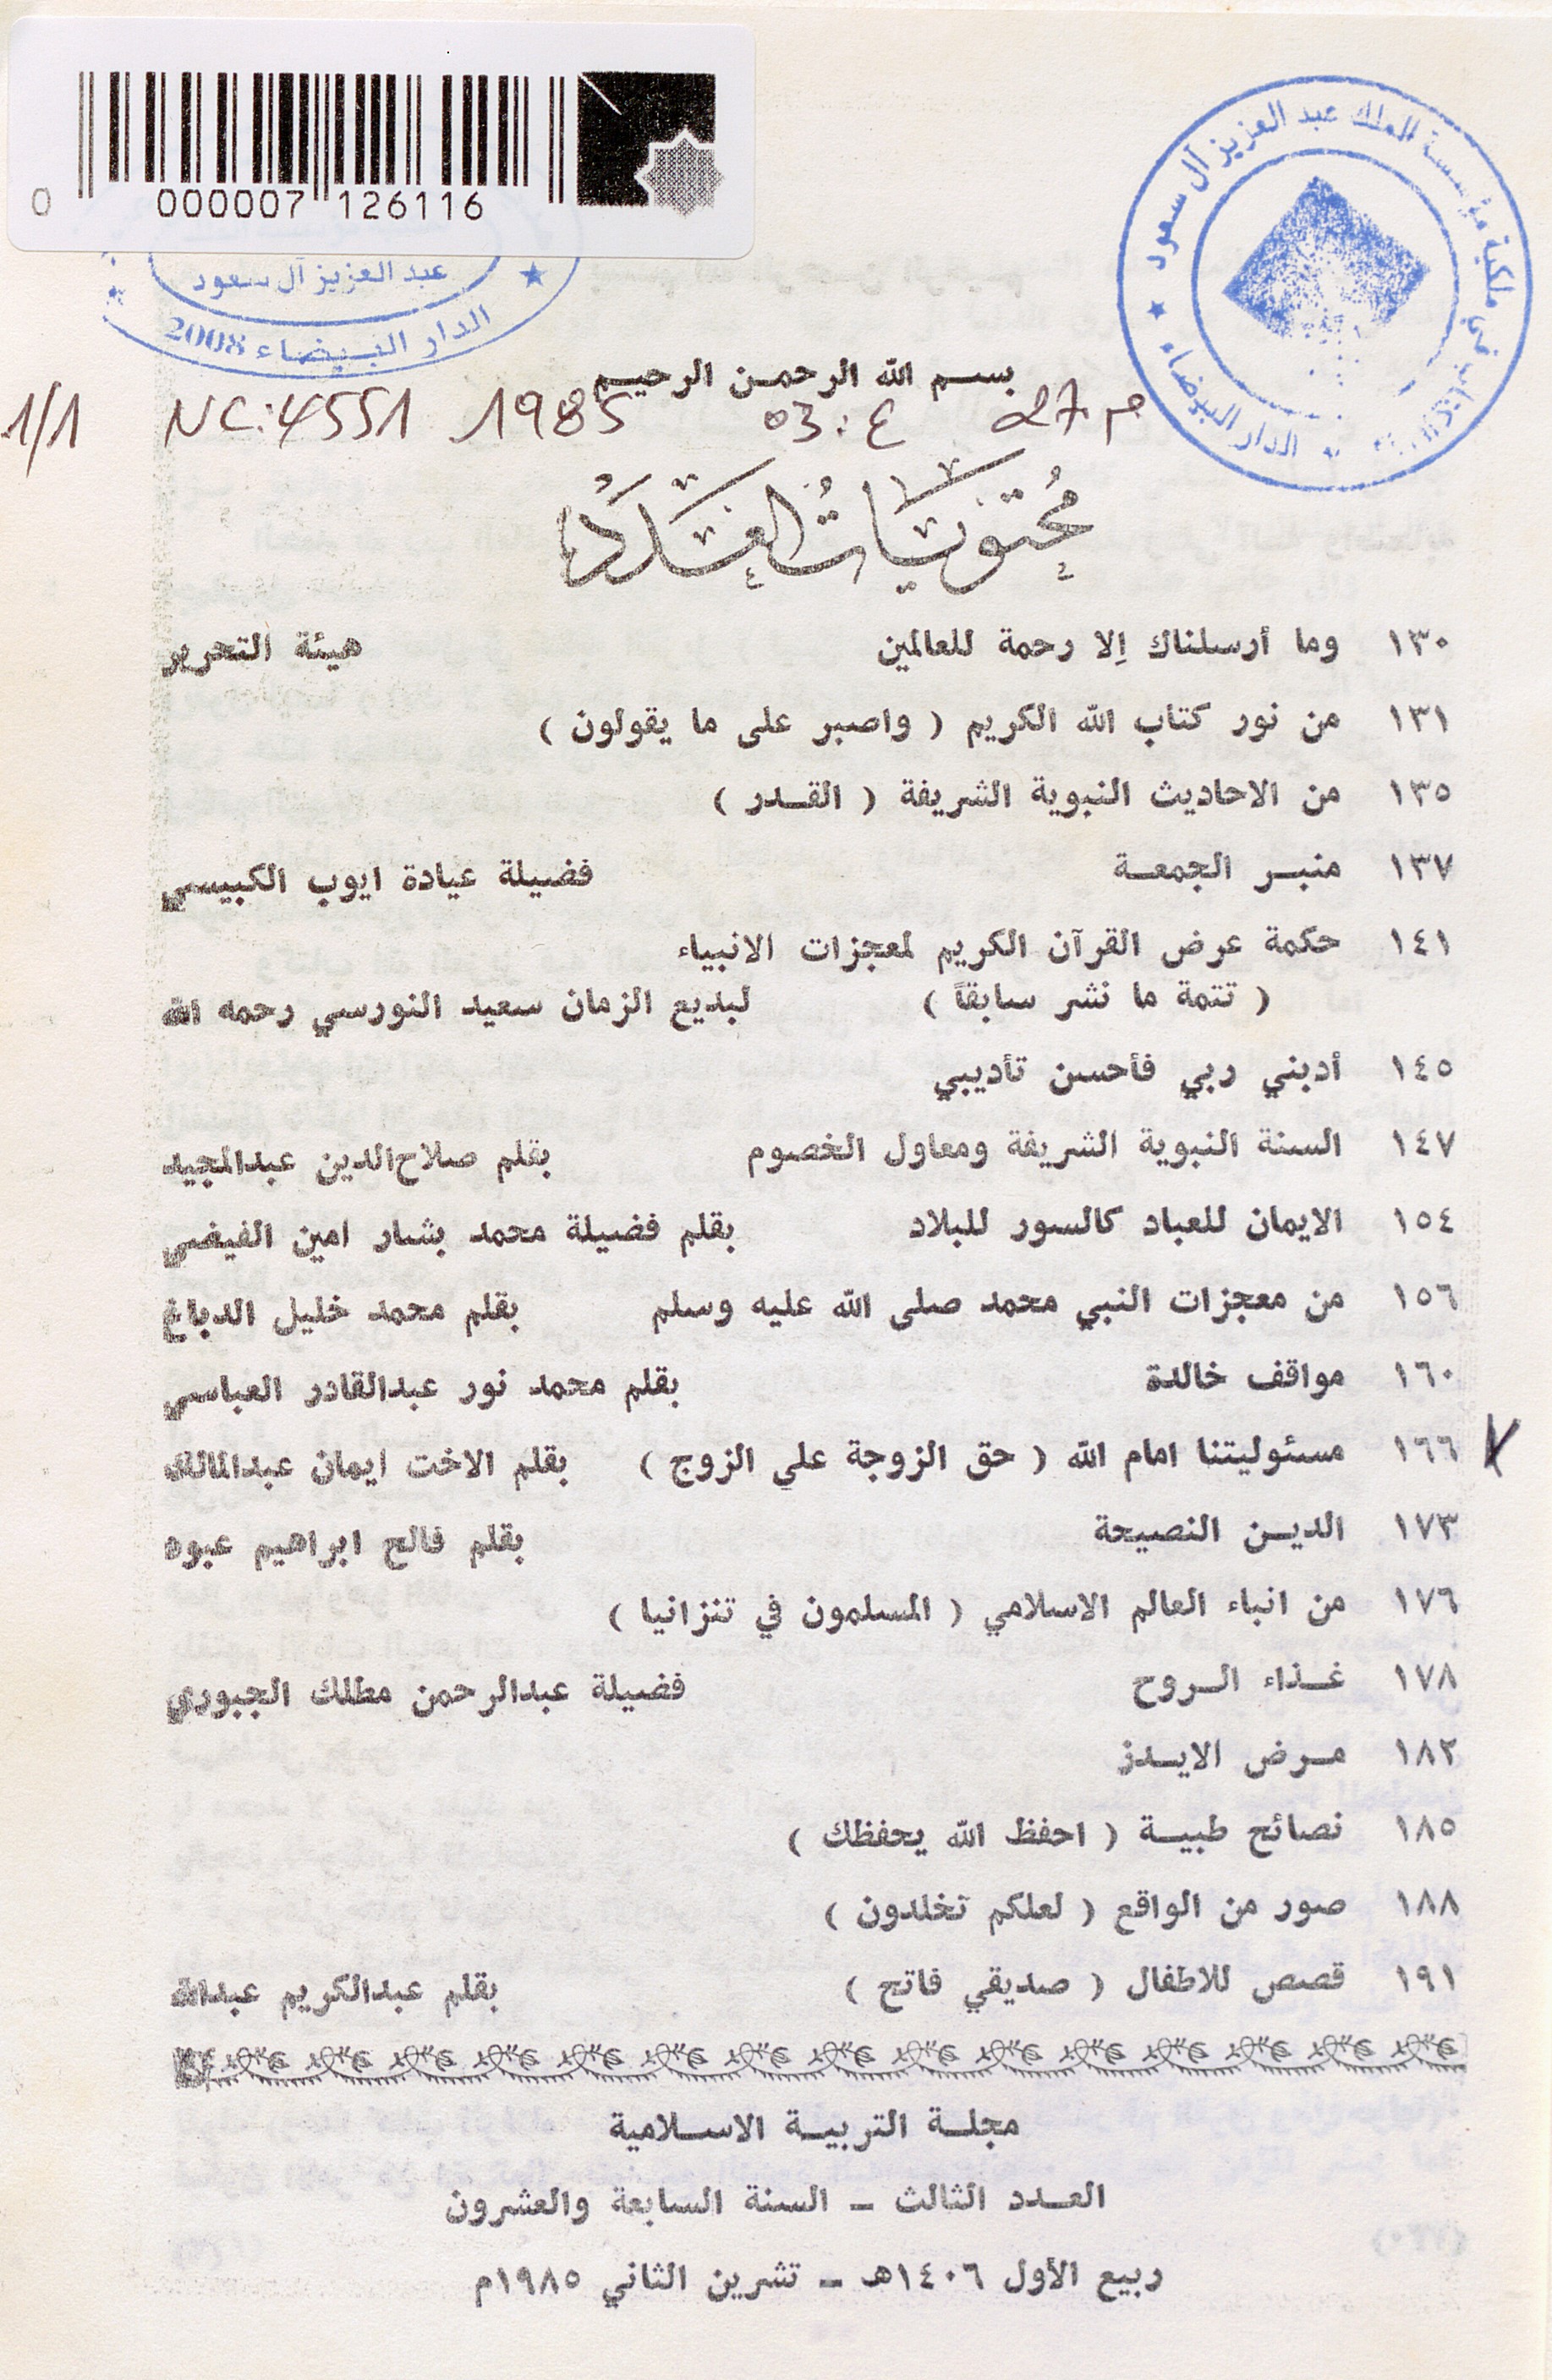 0 000007 126116
ملكية مؤسسة الملك عبد العزيز آل سعود
الدار البيضاء
عبد العزيز آل سعود
الدار البيضاء 2008
بسم الله الرحمن الرحيم
1/1 NC:4551 1985 ع:03 م.27
محتويات العدد
١٣٠ وما أرسلناك إلا رحمة للعالمين هيئة التحرير
١٣١ من نور كتاب الله الكريم ( واصبر على ما يقولون )
١٣٥ من الاحاديث النبوية الشريفة ( القـدر )
١٣٧ منبـر الجمعـة فضيلة عيادة ايوب الكبيسي
١٤١ حكمة عرض القرآن الكريم لمعجزات الانبياء
( تتمة ما نشر سابقاً ) لبديع الزمان سعيد النورسي رحمه الله
١٤٥ أدبني ربي فأحسن تأديبي
١٤٧ السنة النبوية الشريفة ومعاول الخصوم بقلم صلاح الدين عبدالمجيد
١٥٤ الايمان للعباد كالسور للبلاد بقلم فضيلة محمد بشار امين الفيضي
١٥٦ من معجزات النبي محمد صلى الله عليه وسلم بقلم محمد خليل الدباغ
١٦٠ مواقف خالدة بقلم محمد نور عبدالقادر العباسي
١٦٦ مسئوليتنا امام الله ( حق الزوجة علي الزوج ) بقلم الاخت ايمان عبدالمالك
١٧٣ الديـن النصيحة بقلم فالح ابراهيم عبوه
١٧٦ من انباء العالم الاسلامي ( المسلمون في تنزانيا )
١٧٨ غـذاء الـروح فضيلة عبدالرحمن مطلك الجبوري
١٨٢ مـرض الايـدز
١٨٥ نصائح طبيـة ( احفظ الله يحفظك )
١٨٨ صور من الواقع ( لعلكم تخلدون )
١٩١ قصص للاطفال ( صديقي فاتح ) بقلم عبدالكريم عبدالله
مجلـة التربيـة الاسـلامية
العـدد الثالث ـ السنة السابعة والعشرون
ربيع الأول ١٤٠٦هـ ـ تشرين الثاني ١٩٨٥م